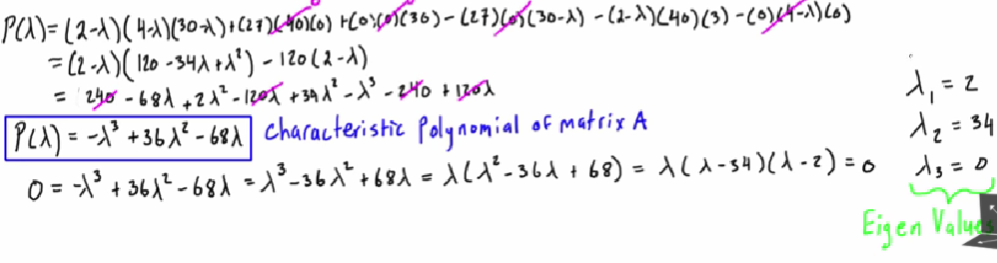 P(λ) = (2-λ)(4-λ)(30-λ)+(27)(40)(0)+(0)(0)(30) - (27)(0)(30-λ) - (2-λ)(40)(3) - (0)(4-λ)(0)
= (2-λ)(120-34λ+λ²) - 120(2-λ)
= 240 - 68λ + 2λ² - 120λ + 34λ² - λ³ - 240 + 120λ
P(λ) = -λ³ + 36λ² - 68λ Characteristic Polynomial of matrix A
0 = -λ³ + 36λ² - 68λ = λ³ - 36λ² + 68λ = λ(λ² - 36λ + 68) = λ(λ-34)(λ-2) = 0
λ₁ = 2
λ₂ = 34
λ₃ = 0
Eigen Values